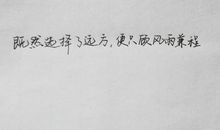 既然选择了远方，便只顾风雨兼程